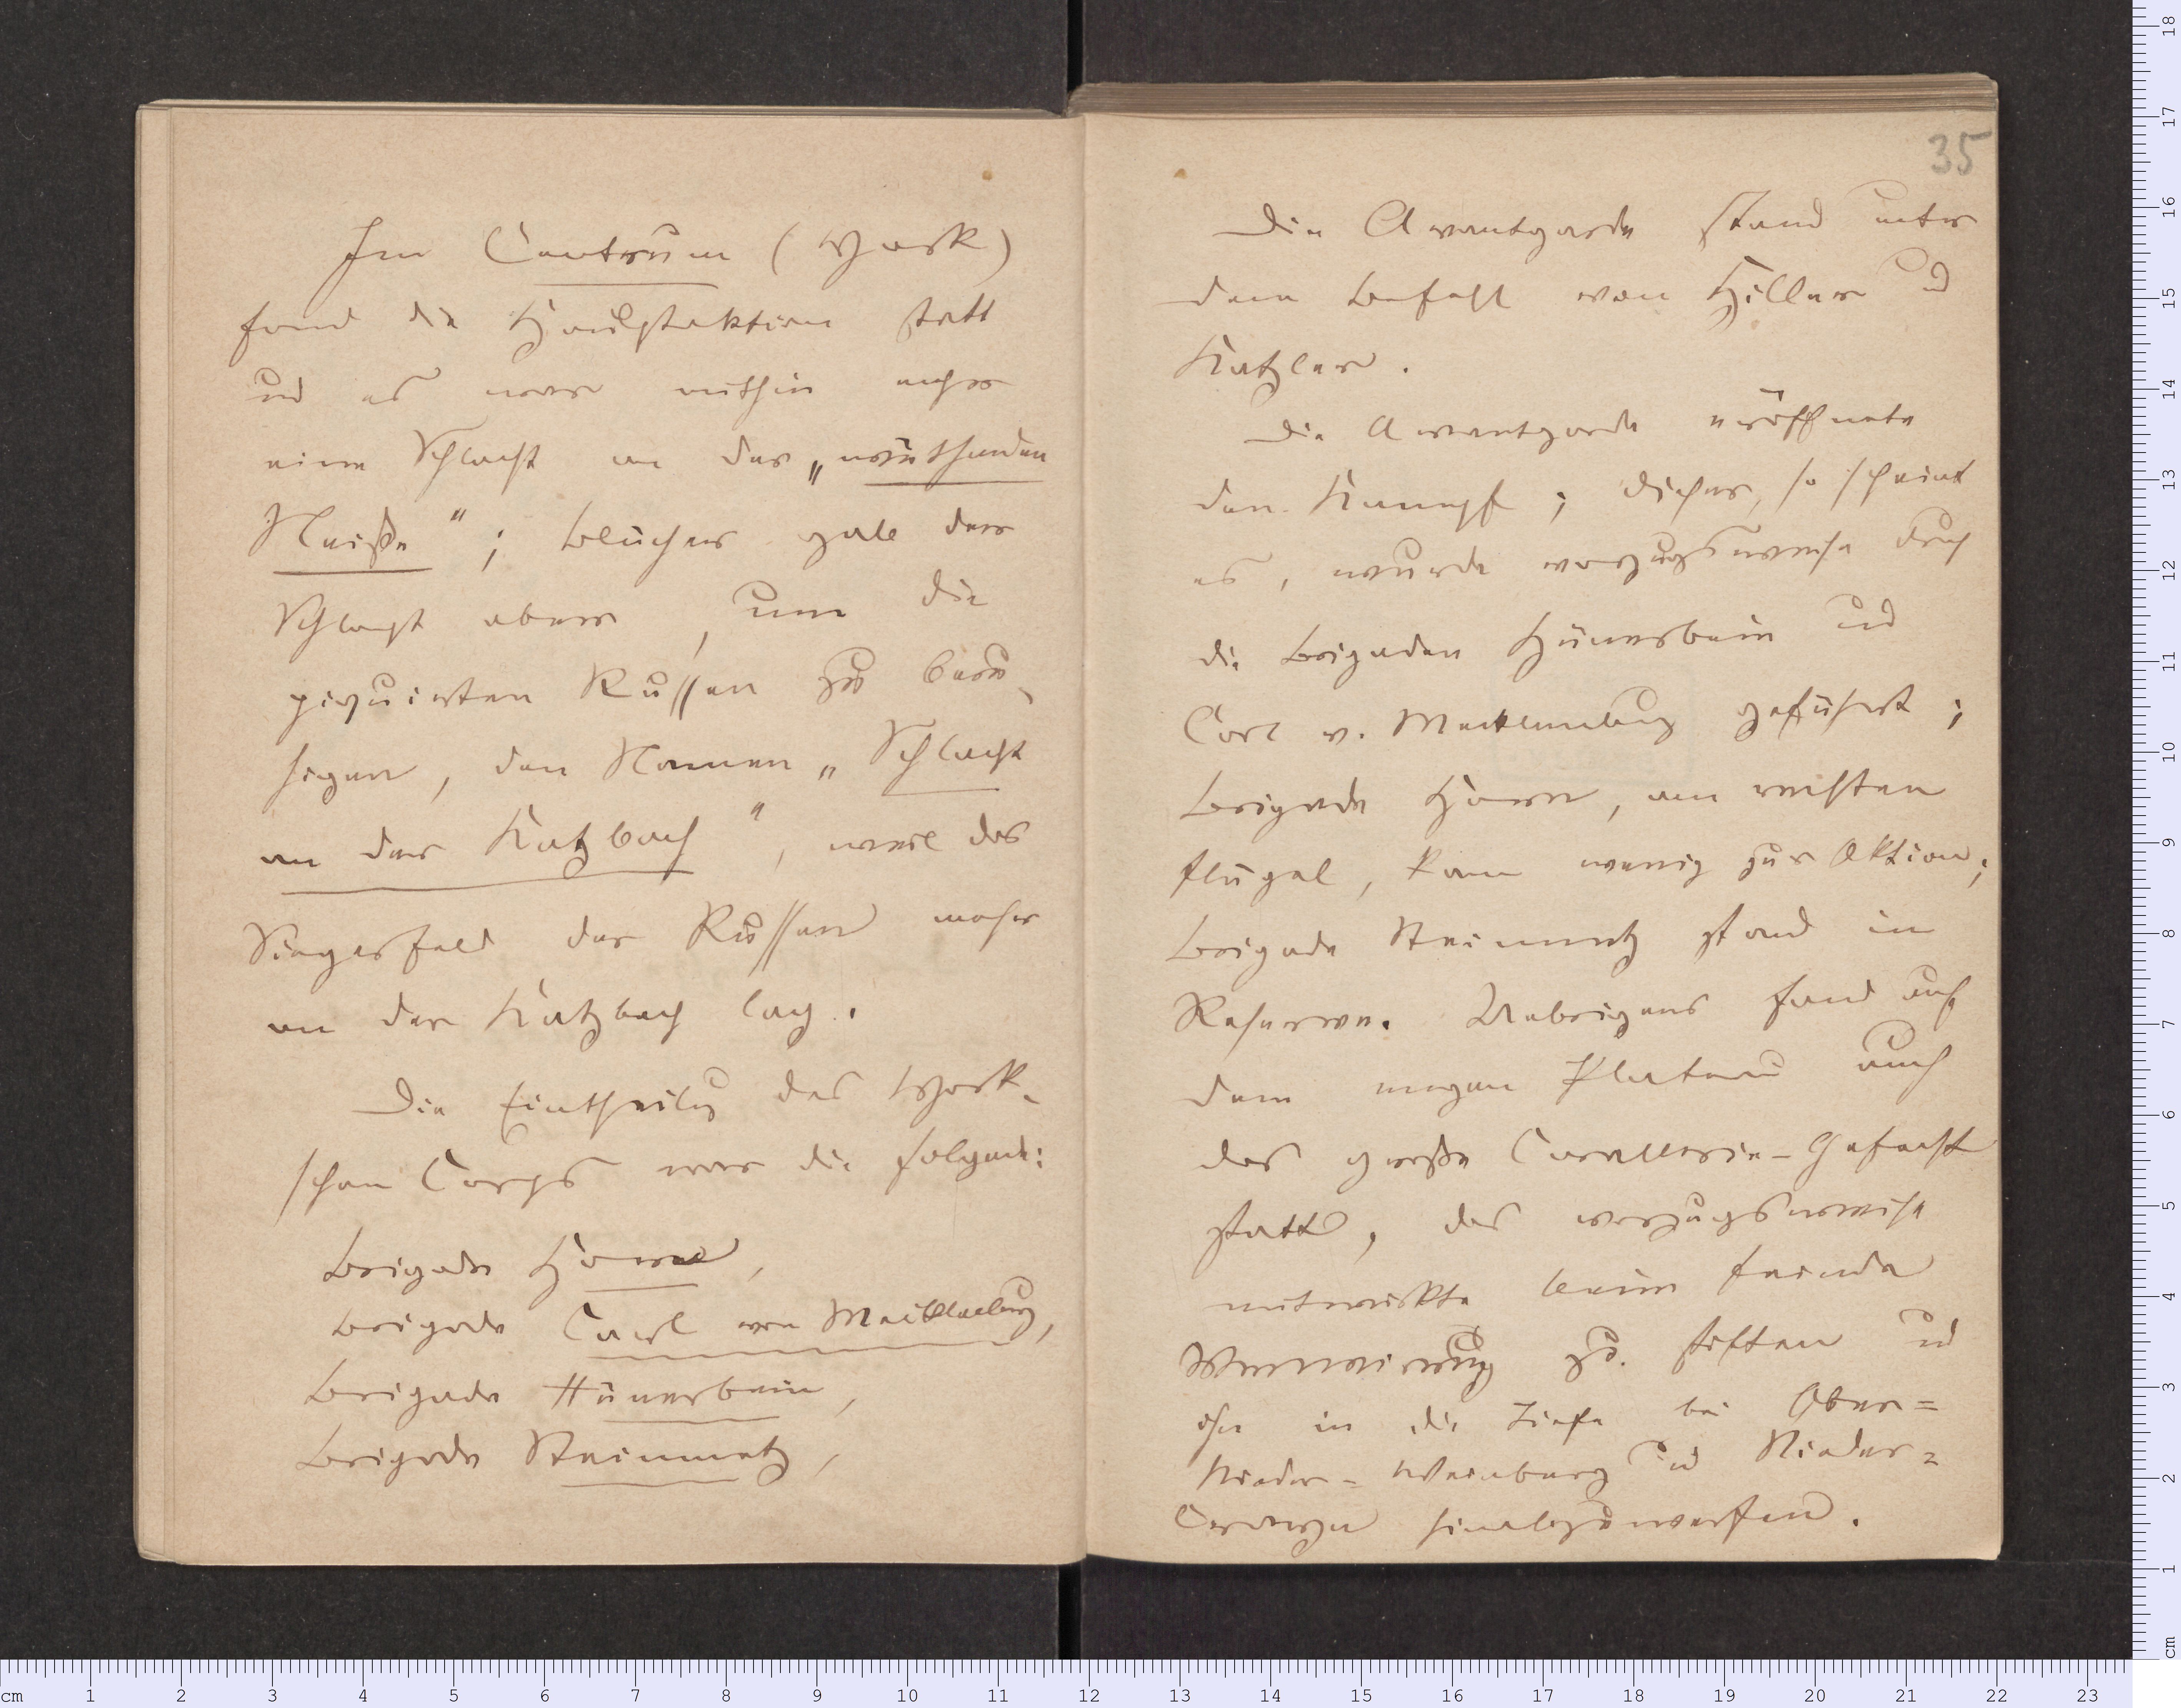 Im Centrum (York)
fand die Hauptaktion statt
und es war mithin mehr
eine Schlacht an der „wüthenden
Neiße"; Blücher gab der
Schlacht aber, um die
piquirten Russen zu beru-
higen, den Namen „Schlacht
an der Katzbach", weil das
Siegesfeld der Russen näher
an der Katzbach lag.
Die Eintheilung des York-
schen Corps war die folgende:
Brigade Horn,
Brigade Carl von Mecklenburg,
Brigade Hünerbein,
Brigade Steinmetz,
35
Die Avantgarde stand unter
dem Befehl von Hiller und
Katzler.
Die Avantgarde eröffnete
den Kampf; dieser, so scheint
es, wurde vorzugsweise durch
die Brigaden Hünerbein und
Carl v. Mecklenburg geführt;
Brigade Horn, am rechten
Flügel, kam wenig zur Aktion;
Brigade Steinmetz stand in
Reserve. Uebrigens fand auf
dem engen Plateau auch
das große Cavallerie-Gefecht
statt, das vorzugsweise
mitwirkte beim Feinde
Verwirrung zu stiften und
ihn in die Tiefe bei Ober=
Nieder=Weinberg und Nieder=
Crayn hinabzuwerfen.